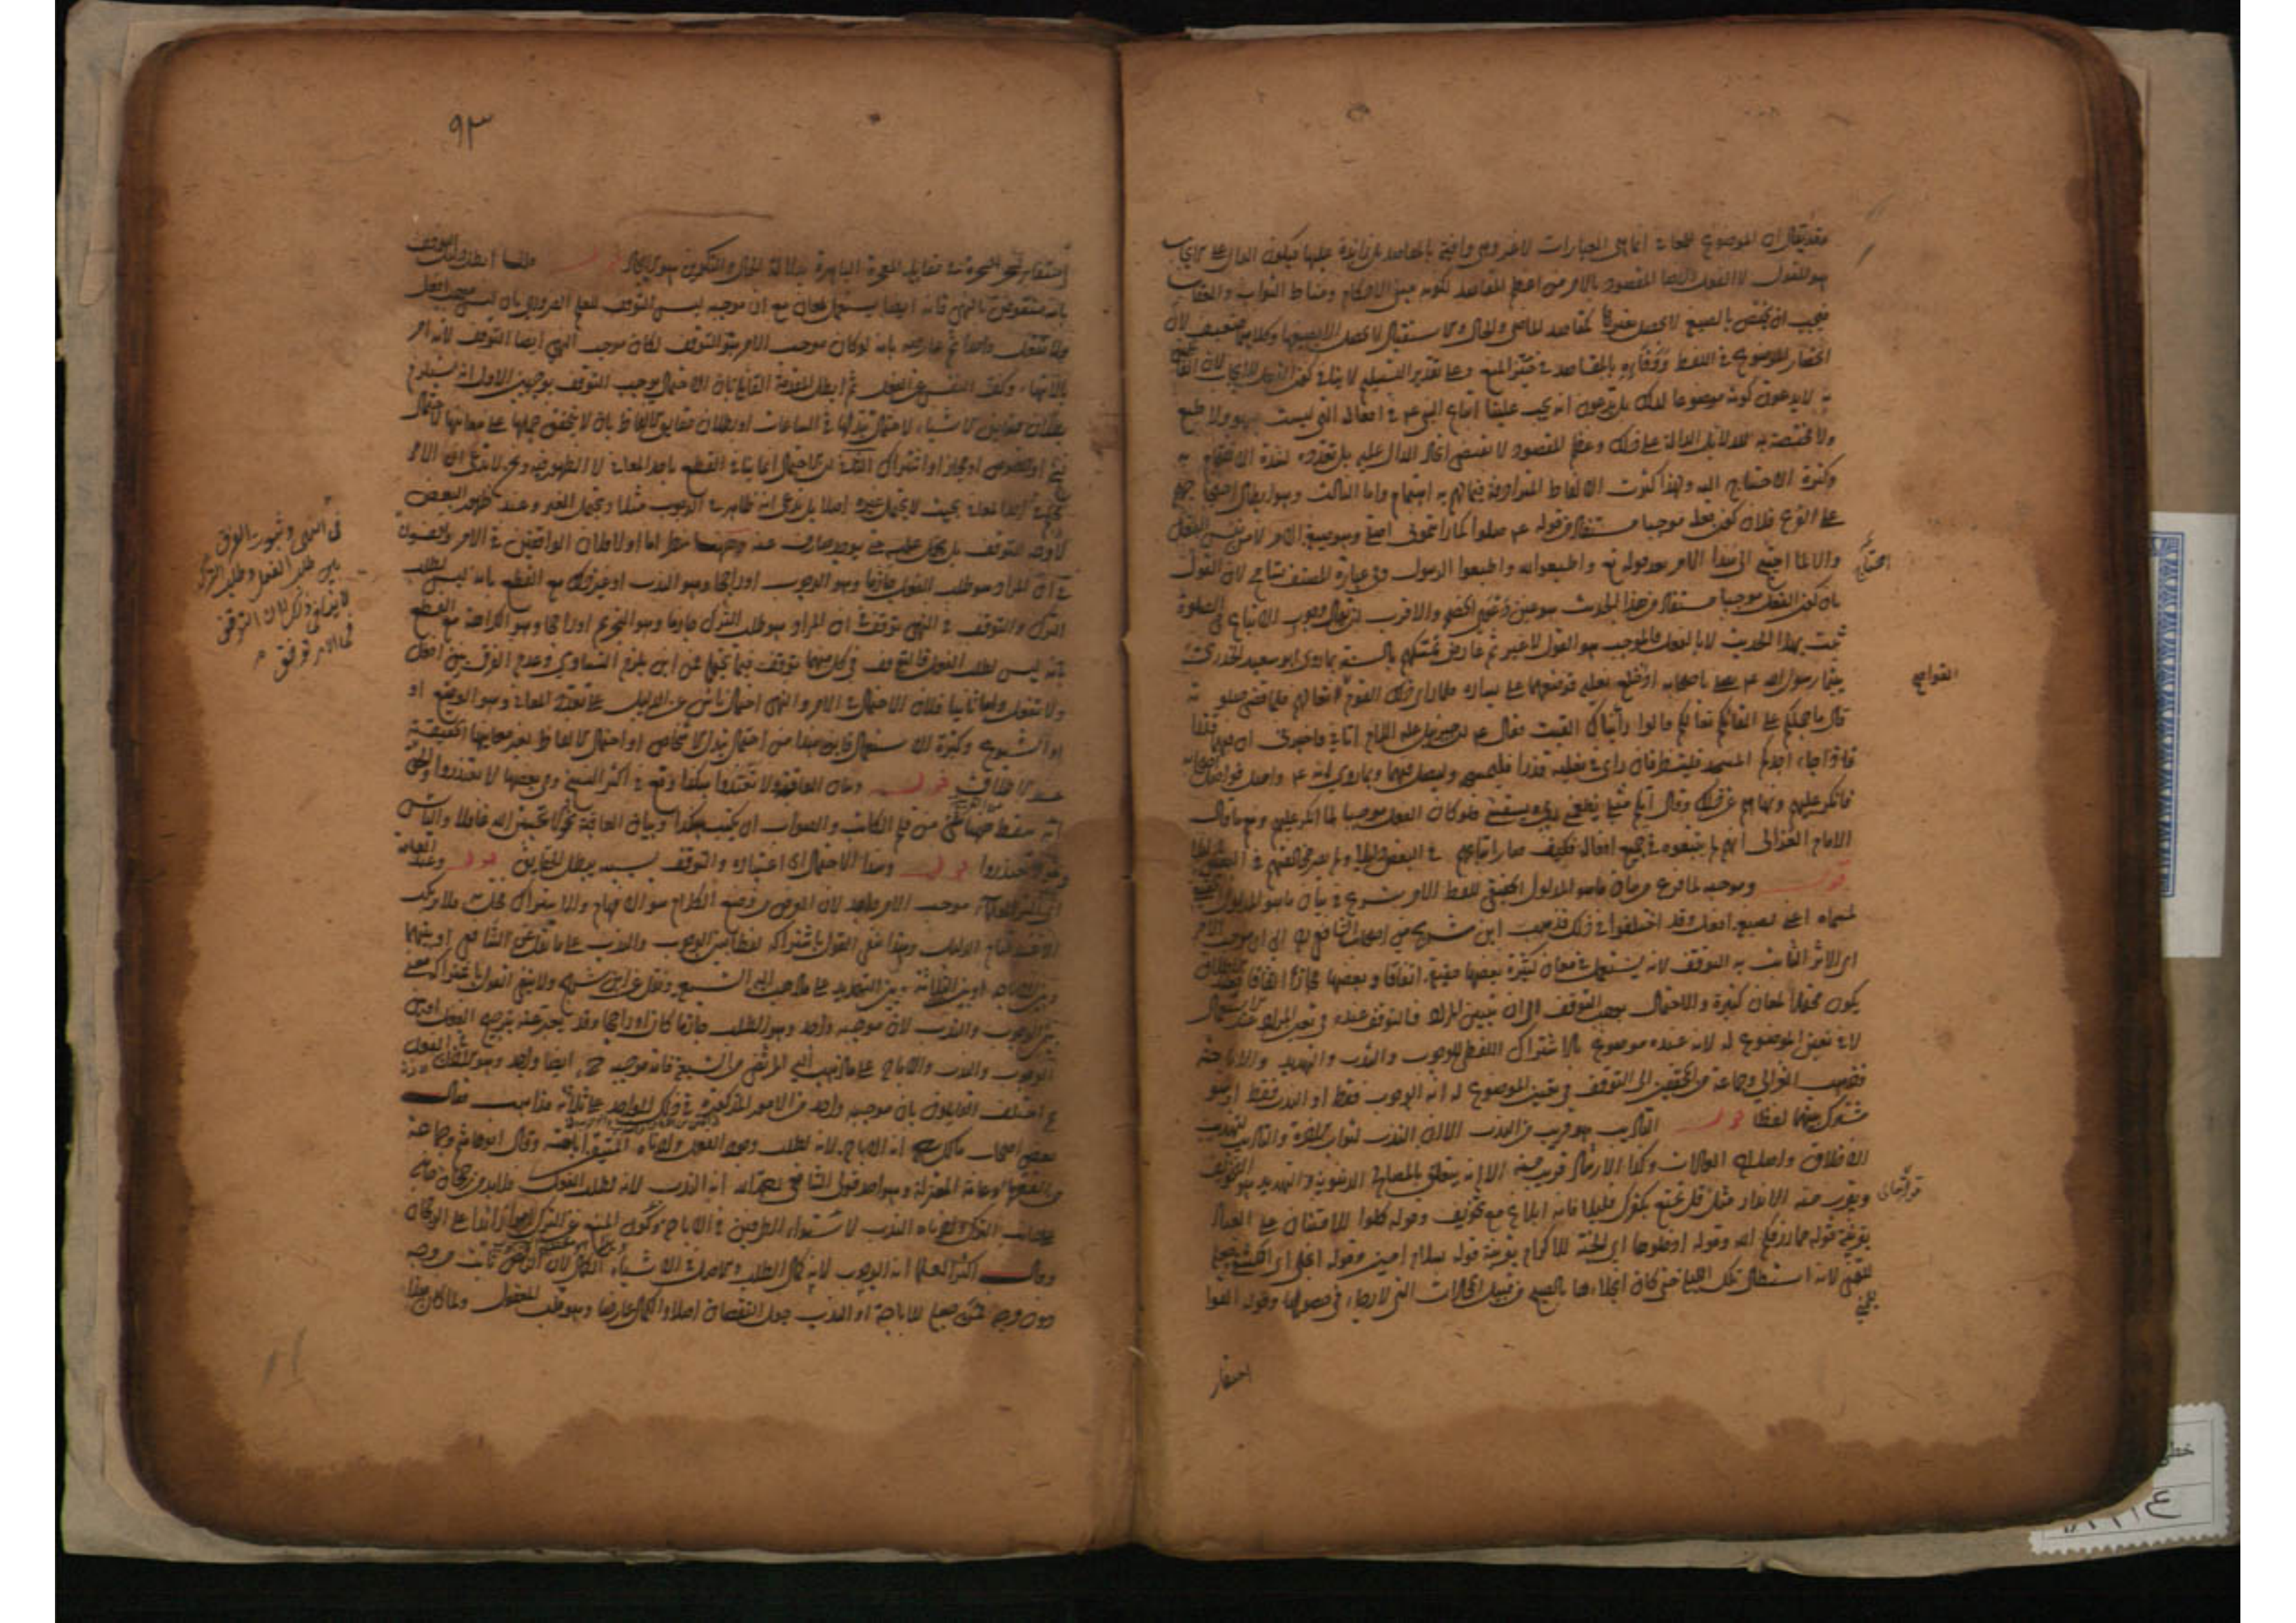 فقد يقال ان الموضوع للمعاني انما هي العبارات لا غير وهي وافية بالمقاصد بل زائدة عليها فيكون الدال على الايجاب
هو القول لا الفعل وايضا المقصود بالامر من اعظم المقاصد لكونه مبنى الاحكام ومناط الثواب والعقاب
فيجب ان يختص بالصيغ لا يحصل بغيرها كمقاصد الماضي والحال والاستقبال لا يحصل الا بصيغها وكلاهما ضعيف لان
انحصار الموضوع في اللفظ ووفاؤه بالمقاصد في حيز المنع وعلى تقدير التسليم لا ينافي كون الفعل للايجاب لان القائلين
به لا يدعون كونه موضوعا لذلك بل يدعون انه يجب علينا اتباع النبي عم في افعاله التي ليست بسهو ولا طبع
ولا مختصة به للدلائل الدالة على ذلك وعظم المقصود لا يقتضي اتحاد الدال عليه بل تعدده لشدة الاهتمام به
وكثرة الاحتياج اليه ولهذا كثرت الالفاظ المترادفة فيما لهم به اهتمام واما الثالث وهو ابطال احتجاجهم
على الفرع فلان كون فعله موجبا مستفاد من قوله عم صلوا كما رأيتموني اصلي وهو صيغة الامر لا من نفس الفعل
والا لما احتيج الى هذا الامر بعد قوله تع واطيعوا الله واطيعوا الرسول وفي عبارة المصنف تسامح لان القول
بان كون الفعل موجبا مستفاد من هذا الحديث هو عين دعوى الخصم والاقرب ان يقال وجوب الاتباع في الصلوة
ثبت بهذا الحديث لا بالفعل فالموجب هو القول لا غير ثم عارض تمسكهم بالسنة بما روى ابو سعيد الخدري انه
بينما رسول الله عم يصلي باصحابه اذ خلع نعليه فوضعهما على يساره فلما رأى ذلك القوم القوا نعالهم فلما قضى صلوته
قال ما حملكم على القائكم نعالكم قالوا رأيناك القيت فقال عم ان جبرئيل عليه السلام اتاني فاخبرني ان فيهما قذرا
اذا جاء احدكم المسجد فلينظر فان رأى في نعليه قذرا فليمسحه وليصل فيهما وبما روى انه عم واصل فواصل اصحابه
فانكر عليهم ونهاهم عن ذلك وقال ايكم مثلي يطعمني ربي ويسقيني فلو كان الفعل موجبا لما انكر عليهم ومع ما قال
الامام الغزالي انهم لم يتبعوه في جميع افعاله فكيف صار اتباعهم في البعض دليلا ولم يصر مخالفتهم في البعض دليلا
قوله وموجبه لما فرغ من بيان ما هو المدلول الحقيقي للفظ الامر شرع في بيان ما هو المدلول
لمسماه اعني لصيغة افعل وقد اختلفوا في ذلك فذهب ابن شريح من اصحاب الشافعي الى ان موجب الامر
اي الاثر الثابت به التوقف لانه يستعمل في معان كثيرة بعضها حقيقة اتفاقا وبعضها مجازا اتفاقا فعند الاطلاق
يكون محتملا لمعان كثيرة والاحتمال يوجب التوقف الى ان يتبين المراد فالتوقف عنده في تعيين المراد عند الاستعمال
لا في تعيين الموضوع له لانه عنده موضوع بالاشتراك اللفظي للوجوب والندب والتهديد والاباحة
فذهب الغزالي وجماعة من المحققين الى التوقف في تعيين الموضوع له انه الوجوب فقط او الندب فقط او هو
مشترك بينهما لفظا قوله التأديب هو قريب من الندب الا ان الندب لثواب الآخرة والتأديب لتهذيب
الاخلاق واصلاح العادات وكذا الارشاد قريب منه الا انه يتعلق بالمصالح الدنيوية والتهديد هو التخويف
ويقرب منه الانذار مثل قل تمتع بكفرك قليلا فانه ابلاغ مع تخويف وقوله كلوا للامتنان على العباد
بقرينة قوله مما رزقكم الله وقوله ادخلوها اي الجنة للاكرام بقرينة قوله بسلام امنين وقوله انجلي اي انكشفي جعل
للتمني لانه استطال تلك الليلة حتى كان انجلاءها بالصبح من قبيل المحالات التي لا رجاء في حصولها وقوله القوا
احتقار
احتجاجهم
القوا نعالهم
قوله تعالى
٩٣
احتقار لسحر السحرة في مقابلة المعجزة الباهرة بدلالة الحال والتكوين هو الايجاد قوله قلنا ابطل دليل التوقف
بانه منقوض بالنهي فانه ايضا يستعمل لمعان مع ان موجبه ليس التوقف للعلم الضروري بان ليس موجب افعل
ولا تفعل واحدا ثم عارضه بانه لو كان موجب الامر هو التوقف لكان موجب النهي ايضا التوقف لانه امر
بالانتهاء وكف النفس عن الفعل ثم ابطل المقدمة القائلة بان الاحتمال يوجب التوقف بوجهين الاول انه يستلزم
بطلان حقايق الاشياء لاحتمال تبدلها في الساعات او بطلان حقايق الالفاظ بان لا يتحقق حملها على معانيها لاحتمال
نسخ او خصوص او مجاز او اشتراك الثاني ان الاحتمال انما ينافي القطع باحد المعاني لا الظهور فيه ونحن لا ندعي ان الامر
محكم في احد المعاني بحيث لا يحتمل غيره اصلا بل ندعي انه ظاهر في الوجوب مثلا ويحتمل الغير وعند ظهور البعض
لا وجه للتوقف بل يحمل عليه حتى يوجد صارف عنه وههنا نظر اما اولا فلان الواقفين في الامر واقفون
في ان المراد هو طلب الفعل جازما وهو الوجوب او راجحا وهو الندب او غير ذلك مع القطع بانه ليس لطلب
الترك والتوقف في النهي توقف في ان المراد هو طلب الترك جازما وهو التحريم او راجحا وهو الكراهة مع القطع
بانه ليس لطلب الفعل فالتوقف في كل منهما توقف فيما يحتمله فمن اين يلزم التساوي وعدم الفرق بين افعل
ولا تفعل واما ثانيا فلان الاحتمال في الامر والنهي احتمال ناش عن الدليل على تعدد المعاني وهو الوضع او
او الشيوع وكثرة الاستعمال فاين هذا من احتمال تبدل الاشخاص او احتمال الالفاظ لغير معانيها الحقيقية
عند الاطلاق قوله وبيان العاقبة ولا تعتذروا هكذا وقع في اكثر النسخ وفي بعضها لا تعتذروا والحق
انه سقط ههنا شيء من قلم الكاتب والصواب ان يكتب هكذا وبيان العاقبة نحو لا تحسبن الله غافلا واليأس
نحو لا تعتذروا قوله وهذا الاحتمال اي اعتباره والتوقف بسببه يبطل الحقايق قوله وعند العامة
اي اكثر العلماء موجب الامر واحد لان الغرض من وضع الكلام هو الافهام والاشتراك مخل به فلا يرتكب
الا عند قيام الدليل وهذا ينفي القول باشتراكه لفظا بين الوجوب والندب على ما نقل عن الشافعي او بينهما
وبين الاباحة او بين الثلاثة وبين التهديد على ما ذهب اليه الشيعة ونقل عن ابن شريح ولا ينفي القول باشتراكه معنى
بين الوجوب والندب لان موجبه واحد وهو الطلب جازما كان او راجحا وقد يعبر عنه بترجيح الفعل او بين
الوجوب والندب والاباحة على ما ذهب اليه المرتضى من الشيعة فان موجبه ح ايضا واحد وهو الاذن في الفعل
ثم اختلف القائلون بان موجبه واحد من الامور المذكورة في ذلك الواحد على ثلاثة مذاهب فقال
بعض اصحاب مالك انه الاباحة لانه لطلب وجود الفعل وادناه المتيقن اباحته وقال ابو هاشم وجماعة
من الفقهاء وعامة المعتزلة وهو احد قولي الشافعي انه الندب لانه لطلب الفعل فلا بد من رجحان جانبه
على جانب الترك وادناه الندب لاستواء الطرفين في الاباحة وكون المنع عن الترك امرا زائدا على الرجحان
وقال اكثر العلماء انه الوجوب لانه كمال الطلب والاصل في الاشياء الكمال لان الناقص ثابت من وجه
دون وجه فمن جعلها للاباحة او الندب جعل النقصان اصلا والكمال عارضا وهو قلب المعقول ولما كان هذا
في النهي وثبوت الفرق
بين طلب الفعل وطلب الترك
لا ينافي ذلك لان التوقف
في الامر توقف